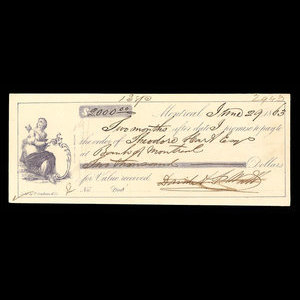 340 2943
$2000.00 Montreal June 29 1863
Two months after date I promise to pay to
the order of Theodore Hart Esqr
at Bank of Montreal
Two thousand Dollars
for Value received
No. Due